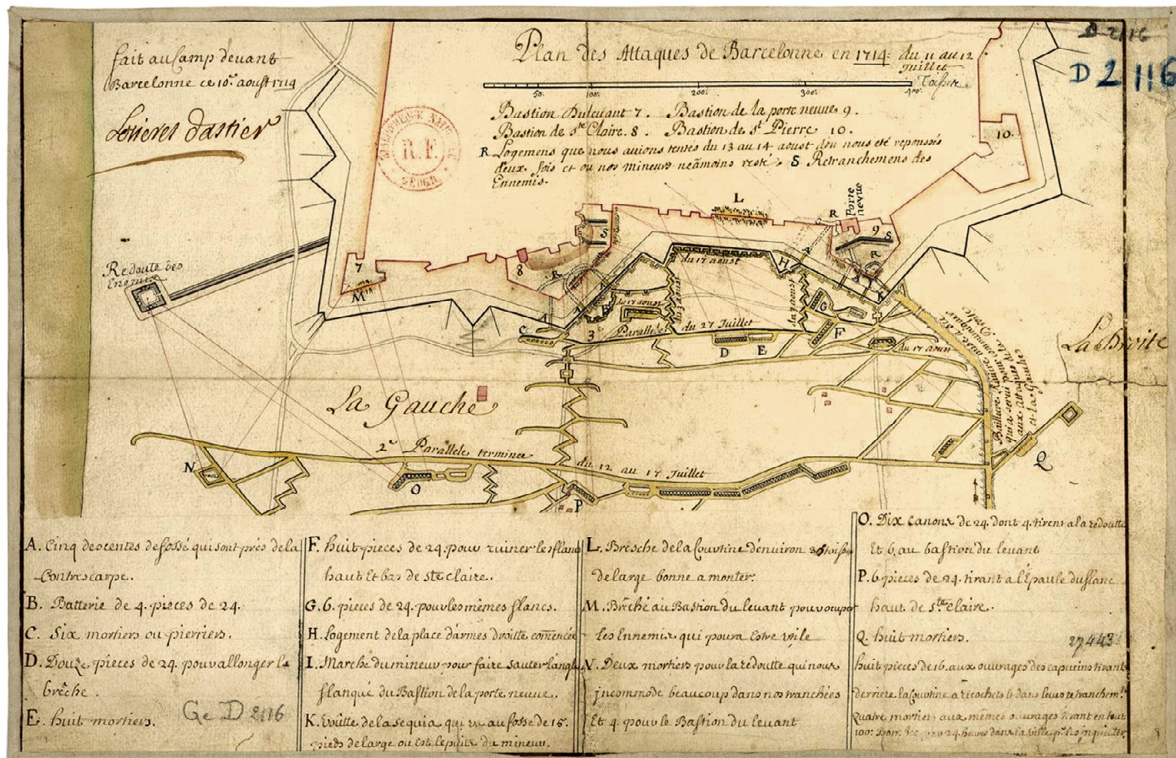 fait au Camp devant
Barcelonne ce 18e. aoust 1714
Plan des Attaques de Barcelonne en 1714. du 11 au 12
Juillet
50. 100. 200. 300. 400. Toises
D 2116
D 2116
Bastion Duleuant 7. Bastion de la porte neuue 9.
Bastion de Ste Claire. 8. Bastion de St Pierre 10.
R Logemens que nous auions tentés du 13 au 14 aoust dou nous été repoussés
deux fois et ou nos mineurs neãmoins resté S Retranchemens des
Ennemis.
R.F.
10.
L
R
Porte neuue
9
S
S
R
7
8
M
R
H
R
Redoute des
Ennemis
du 17 aoust
du 17 aoust
C
3e
Parallele du 27 Juillet
G
F
D
E
K
du 17 aoust
La Droite
La Gauche
2e Parallele terminée
du 12 au 17 Juillet
N
O
P
Q
A. Cinq descentes de fossé qui sont près de la
Contrescarpe.
B. Batterie de 4. pieces de 24.
C. Six mortiers ou pierriers.
D. Douze pieces de 24. pour allonger la
brêche.
E. huit mortiers.
Ge D 2116
F. huit pieces de 24. pour ruiner le flanc
haut Et bas de ste claire.
G. 6. pieces de 24. pour les mêmes flancs.
H. logement de la place d'armes droitte comencée
I. Marche du mineur pour faire sauter l'angle
flanqué du Bastion de la porte neuve.
K. voûte de la sequia qui va au fossé de 15.
pieds de large ou est le puits du mineur.
L. Brèsche de la Courtine d'environ 35 toises
de large bonne a monter.
M. Brêche au Bastion du levant pour occuper
les Ennemis qui poura Estre utile
N. Deux mortiers pour la redoutte qui nous
jncommode beaucoup dans nos tranchées
Et 4. pour le Bastion du levant
O. Dix canons de 24. dont 4. tirent a la redoutte
Et 6. au bastion du levant
P. 6 pieces de 24. tirant a l'Épaule du flanc
haut de ste claire.
Q. huit mortiers.
27443
huit pieces de 16. aux ouvrages des capucins tirant
derriere la Courtine a ricochets et dans leurs retranchemts.
Quatre mortiers aux mêmes ouvrages tirant en tout